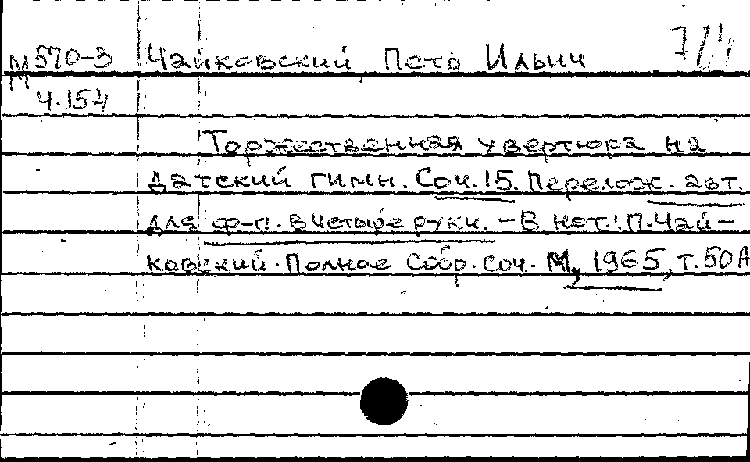 М 570-3 Чайковский Петр Ильич
Ч.154
Торжественная увертюра на
датский гимн. Соч.15. Перелож. авт.
для ф-п. в четыре руки. – В нот.: П. Чай-
ковский. Полное Собр. соч. М., 1965, т. 50А